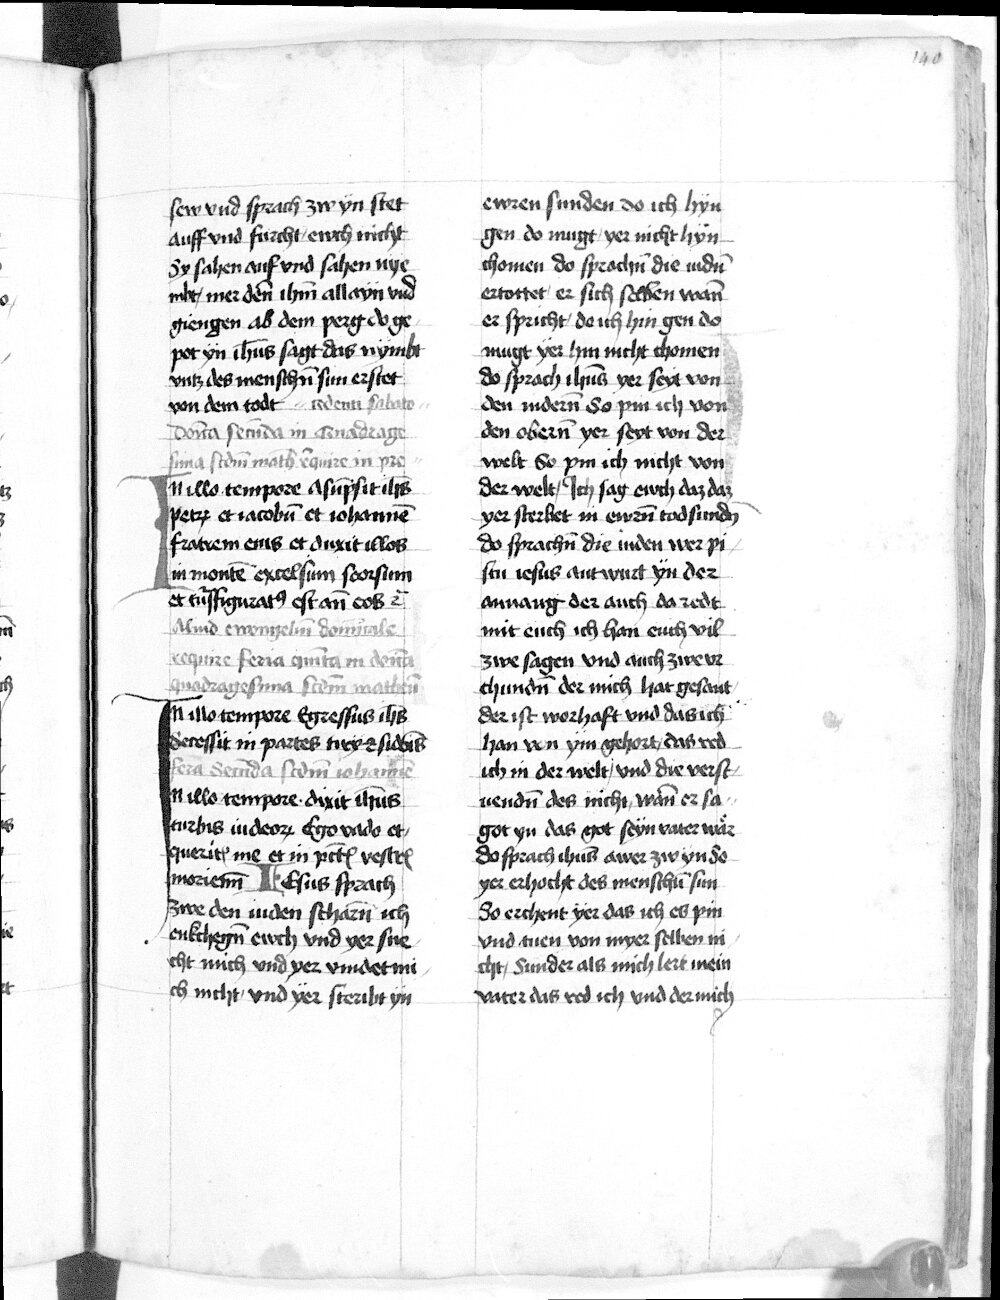 140
sew vnd sprach zw yn stet
auff vnd furcht ewch nicht
Sy sahen auf vnd sahen nye
mbt mer den̄ ihm̄ allayn vnd
giengen ab dem perg do ge
pot yn ih̄us sagt das nymbt
vntz des menschn̄ sun erstet
von dem todt sabato
Don̄ca secūda in Quadrage
sima scdm̄ math̄ require in pre
In illo tempore Asup̄sit ih̄s
petrꝝ et iacobū et iohannē
fratrem eius et duxit illos
in montē excelsum seorsum
et trāsfiguratꝰ est an̄ eos ⁊̄
Aliud ewangeliū domīcale
require feria quīta in don̄ca
quadragesima scdm̄ matheū
In illo tempore Egressus ih̄s
Secessit in partes tiry ⁊ sidōis
feria Secūda scdm̄ iohannē
In illo tempore dixit ih̄us
turbis iudeorꝝ Ego vado et
queritꝭ me et in pctō vestrō
moriem̄ IEsus sprach
zwe den iuden scharn̄ ich
enkchegn̄ ewch vnd yer sue
cht mich vnd yer vindet mi
ch nicht vnd yer steribt yn
ewren sunden do ich hyn
gen do mugt yer nicht hyn
chomen do sprachn̄ die iudn̄
ertottet er sich selben wan̄
er spricht do ich hin gen do
mugt yer hin nicht chomen
do sprach ih̄us yer seyt von
den nidern̄ So pin ich von
den obern̄ yer seyt von der
welt So pin ich nicht von
der welt Ich sag ewch daz daz
yer sterbet in ewrn̄ todsundn̄
do sprachn̄ die iuden wer pi
stu iesus antwurt yn der
anuang der auch da redt
mit euch ich han euch vil
zwe sagen vnd auch zwe vr
chundn̄ der mich hat gesant
der ist worhaft vnd das ich
han von ym gehort das red
ich in der welt vnd die verst
uendn̄ des nicht wan̄ er sa
got yn das got seyn vater wär
do sprach ihūs awer zw yn So
yer erhocht des menschn̄ sun
So erchent yer das ich es pin
vnd tuen von myer selben ni
cht Sunder als mich lert mein
vater das red ich vnd der mich